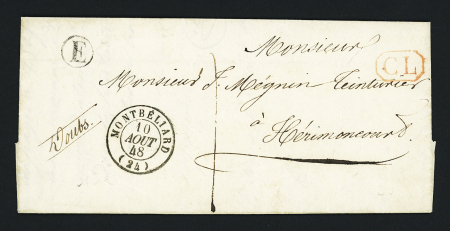 E
Monsieur
CL
Monsieur F. Mégnin Teinturier
à Hérimoncourt
Doubs.
MONTBÉLIARD
10
AOUT
48
(24)
1